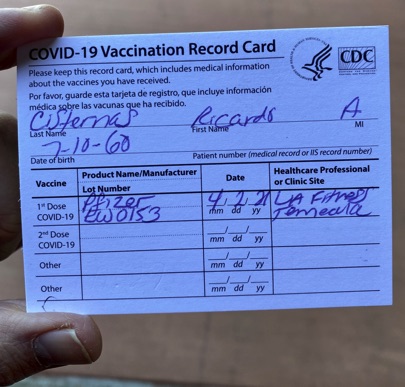 COVID-19 Vaccination Record Card
CDC
Please keep this record card, which includes medical information
about the vaccines you have received.
Por favor, guarde esta tarjeta de registro, que incluye información
médica sobre las vacunas que ha recibido.
Cisternas Ricardo A
Last Name First Name MI
7-10-60
Date of birth Patient number (medical record or IIS record number)
Vaccine Product Name/Manufacturer Date Healthcare Professional
Lot Number or Clinic Site
1st Dose Pfizer 4/2/21 LA Fitness
COVID-19 EW0153 mm dd yy Temecula
2nd Dose ___/___/___
COVID-19 mm dd yy
Other ___/___/___
mm dd yy
Other ___/___/___
mm dd yy